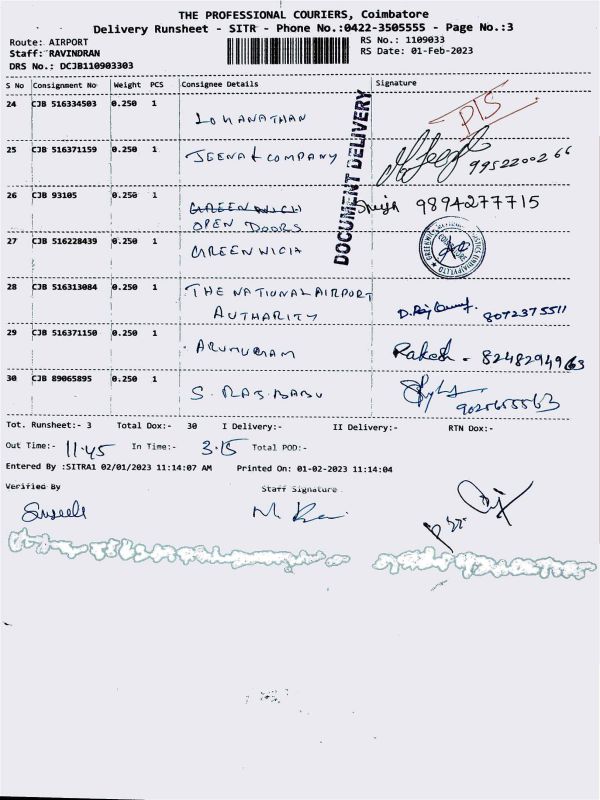 THE PROFESSIONAL COURIERS, Coimbatore
Delivery Runsheet - SITR - Phone No.:0422-3505555 - Page No.:3
Route: AIRPORT RS No.: 1109033
Staff: RAVINDRAN RS Date: 01-Feb-2023
DRS No.: DCJB110903303
S No Consignment No Weight PCS Consignee Details Signature
24 CJB 516334503 0.250 1 LOKANATHAN
25 CJB 516371159 0.250 1 JEENA & COMPANY 9952200266
26 CJB 93105 0.250 1 GREENWICH 9894277715
OPEN DOORS
27 CJB 516228439 0.250 1 GREENWICH
28 CJB 516313084 0.250 1 THE NATIONAL AIRPORT
AUTHARITY 8072375511
29 CJB 516371150 0.250 1 ARUMUGAM Rakesh - 8248294963
30 CJB 89065895 0.250 1 S. RAJ BABU 9025655563
DOCUMENT DELIVERY
Tot. Runsheet:- 3 Total Dox:- 30 I Delivery:- II Delivery:- RTN Dox:-
Out Time:- 11.45 In Time:- 3.15 Total POD:-
Entered By :SITRA1 02/01/2023 11:14:07 AM Printed On: 01-02-2023 11:14:04
Verified By Staff Signature